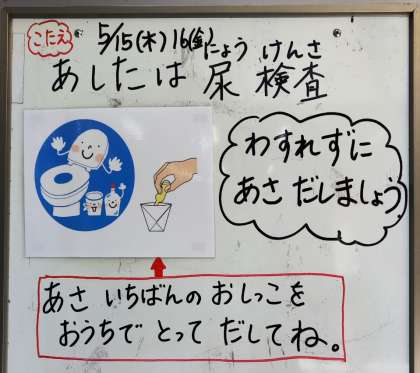 こたえ
5/15(木) 16(金)
にょう けんさ
あしたは 尿 検査
わすれずに
あさ だしましょう
あさ いちばんの おしっこを
おうちで とって だしてね。